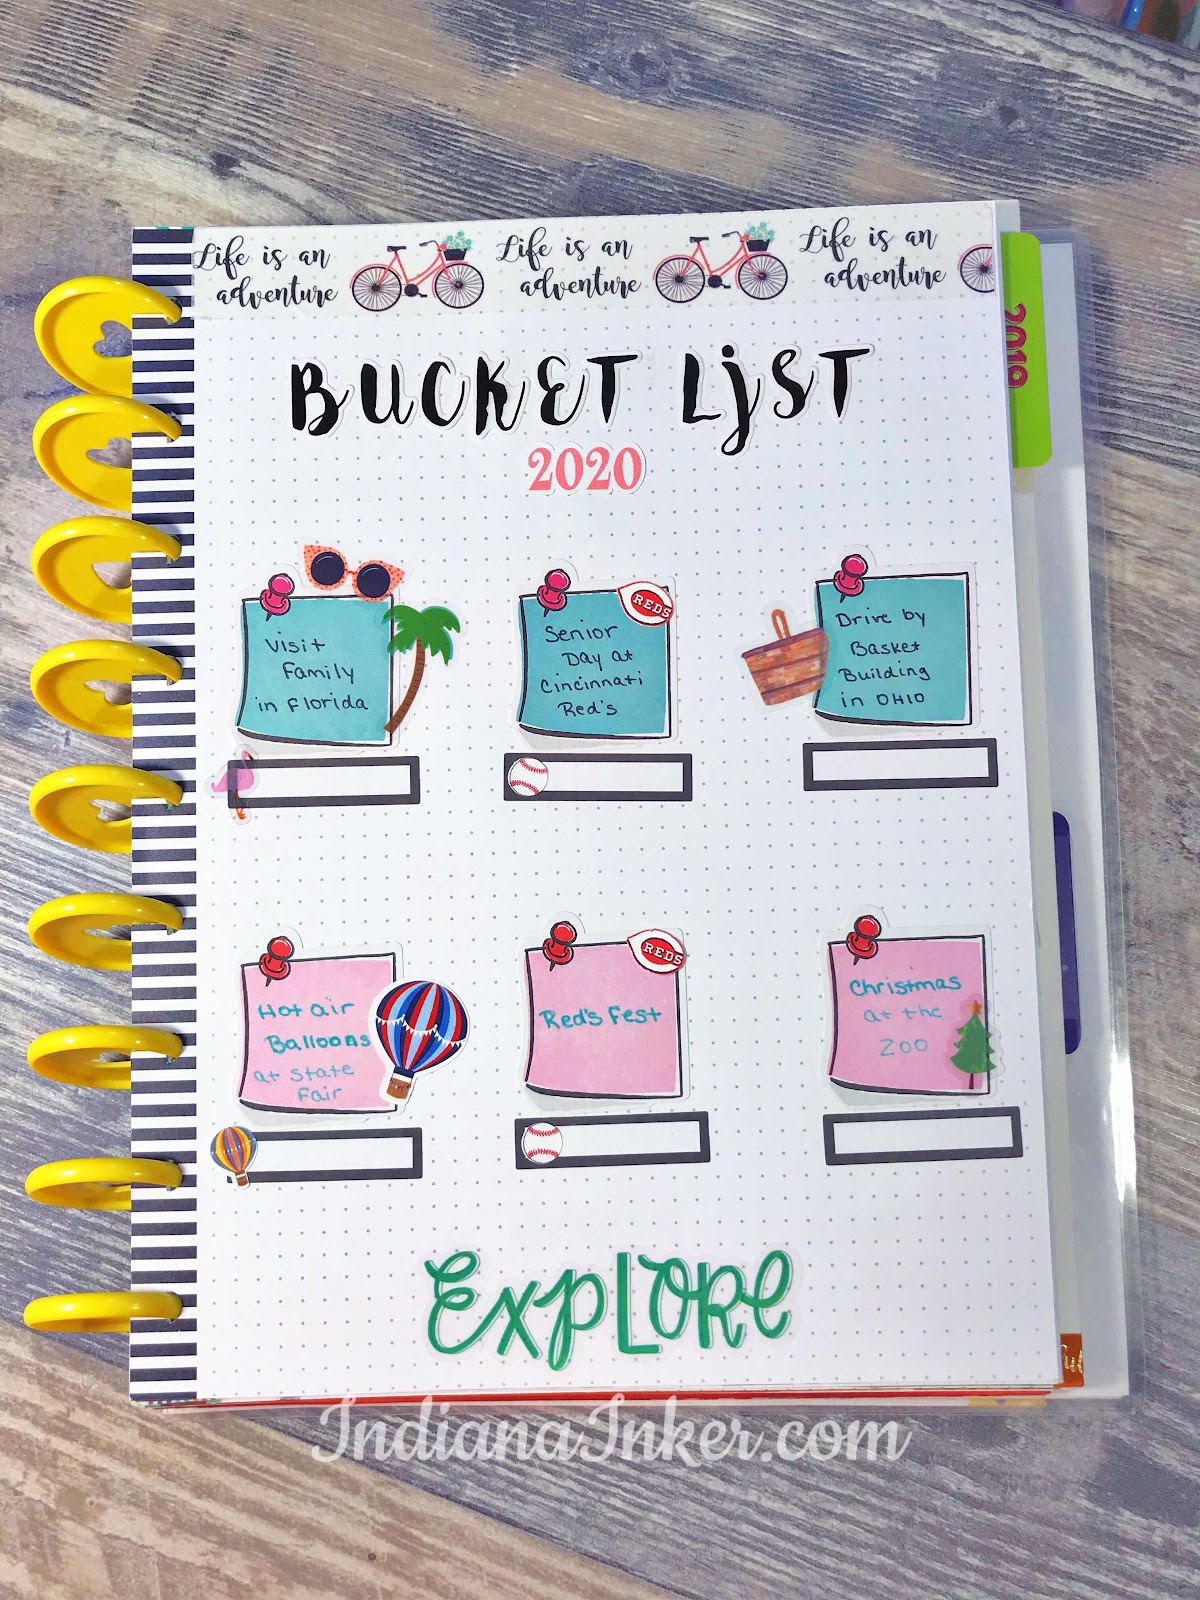 Life is an
adventure
Life is an
adventure
Life is an
adventure
2019
BUCKET LjST
2020
Visit
Family
in Florida
Senior
Day at
Cincinnati
Red's
REDS
Drive by
Basket
Building
in OHIO
Hot air
Balloons
at State
Fair
Red's Fest
REDS
Christmas
at the
ZOO
EXPLORE
IndianaInker.com